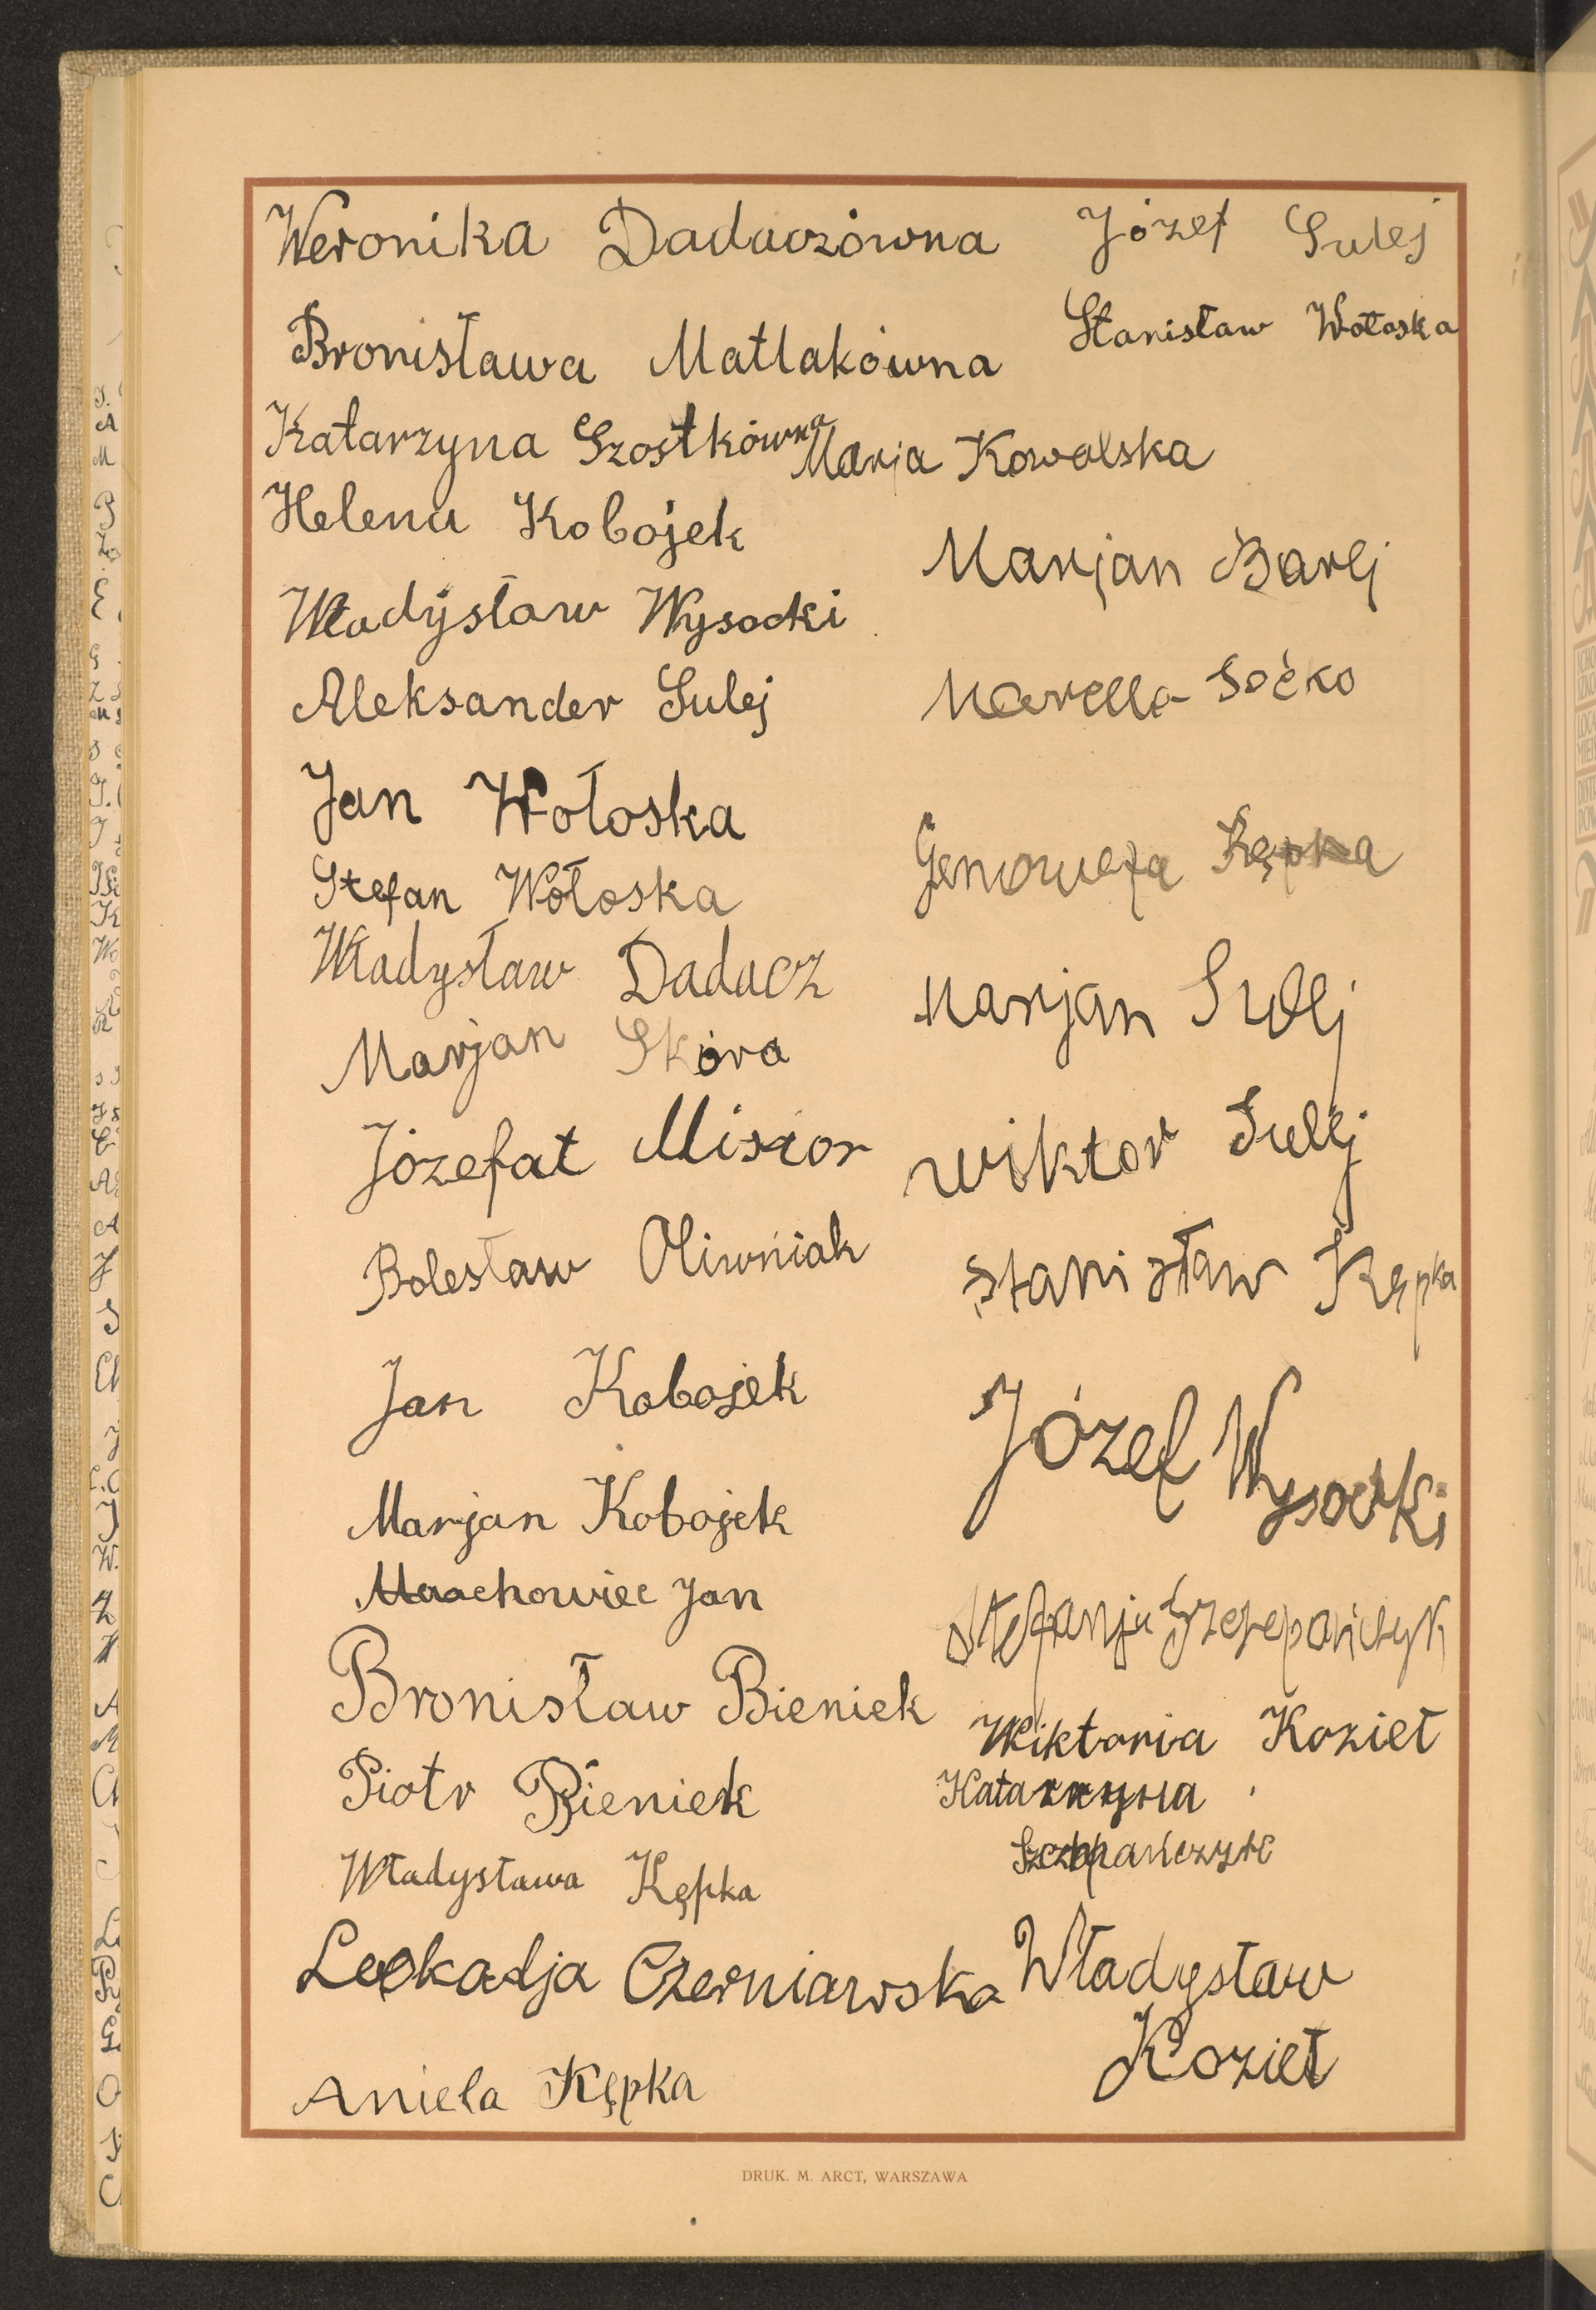 Weronika Dadaczówna
Bronisława Matlakówna
Katarzyna Szostkówna
Helena Kobojek
Władysław Wysocki
Aleksander Sulej
Jan Wołoska
Stefan Wołoska
Władysław Dadacz
Marjan Skóra
Józefat Misior
Bolesław Oliwniak
Jan Kobojek
Marjan Kobojek
Jan
Bronisław Bieniek
Piotr Bieniek
Władysława Kępka
Leokadja Czerniawska
Aniela Kępka
Józef Sulej
Stanisław Wołoska
Marja Kowalska
Marjan Barej
Soćko
Genowefa Kępka
Marjan Sulej
Wiktor Sulej
Stanisław Kępka
Józef Wysocki
Stefanja Szczepańczyk
Wiktoria Kozieł
Katarzyna
Szczepańczyk
Władysław
Kozieł
DRUK. M. ARCT, WARSZAWA